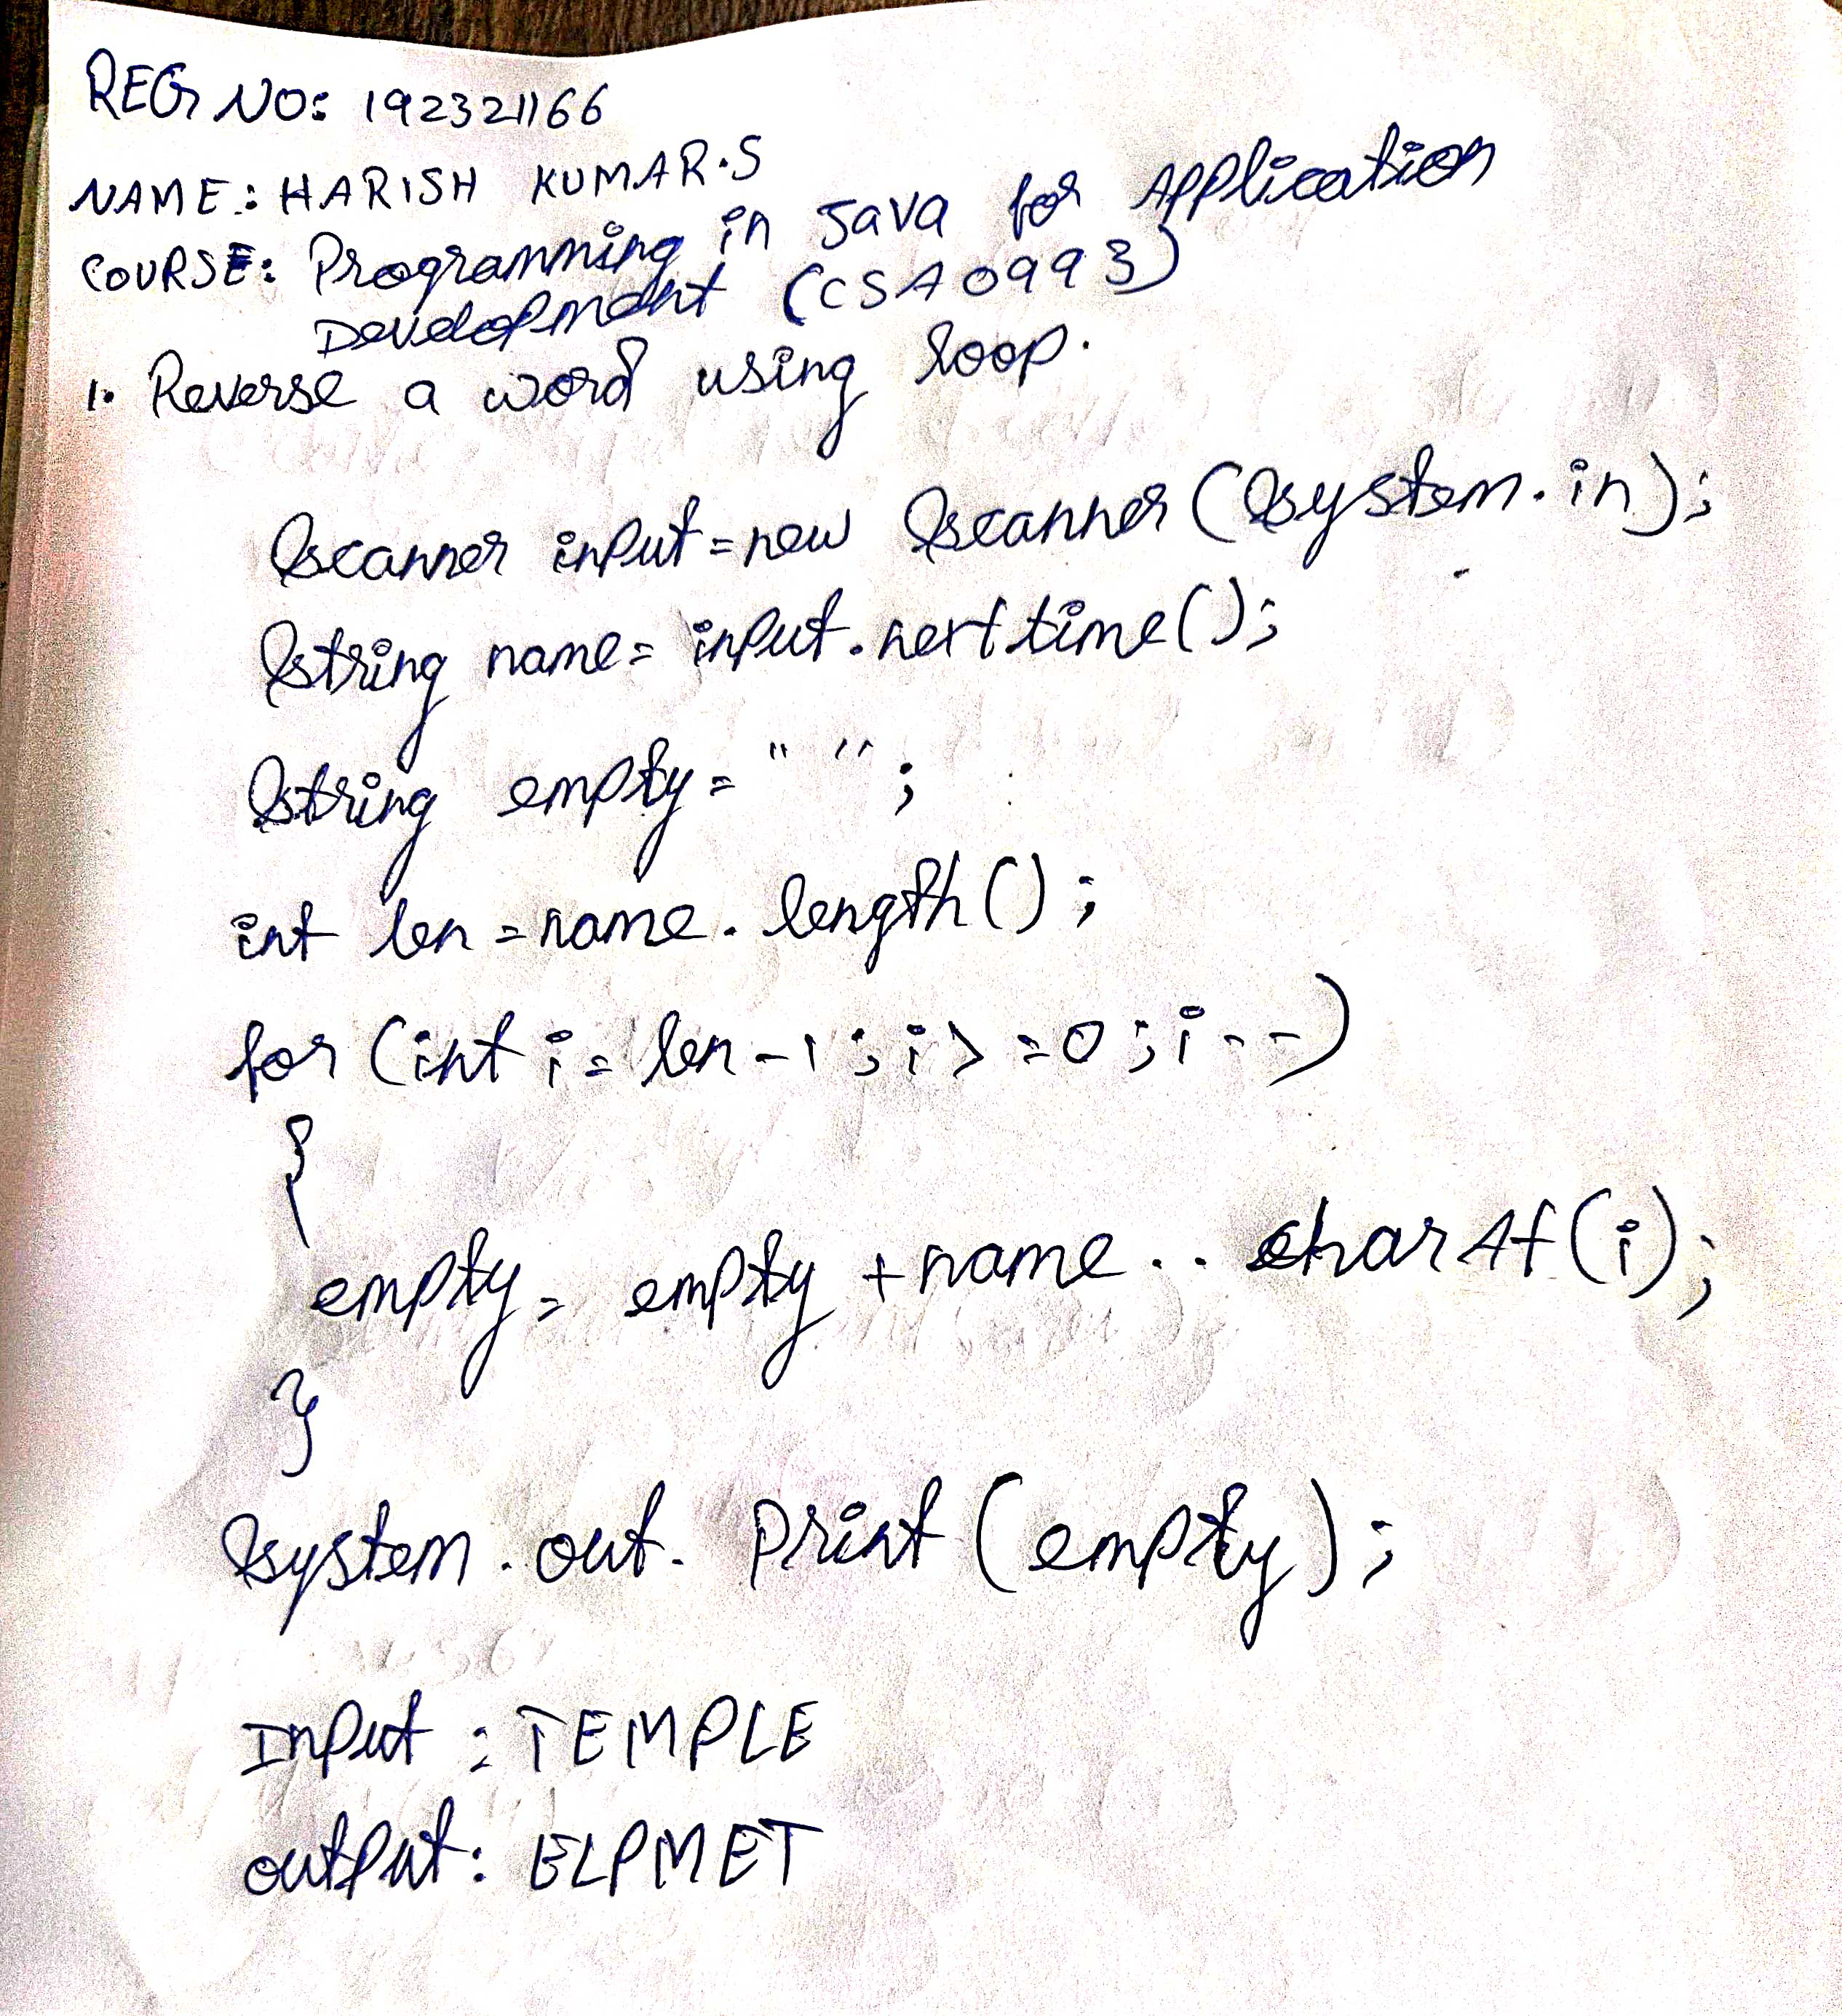 REG NO: 192321166
NAME: HARISH KUMAR.S
COURSE: Programming in Java for Application
Development (CSA0993)
1. Reverse a word using loop.
Scanner input=new Scanner(System.in);
String name= input.nexttime();
String empty=" ";
int len=name.length();
for (int i= len-1;i>=0;i--)
{
empty= empty +name..charAt(i);
}
System.out.print(empty);
Input : TEMPLE
output: ELPMET